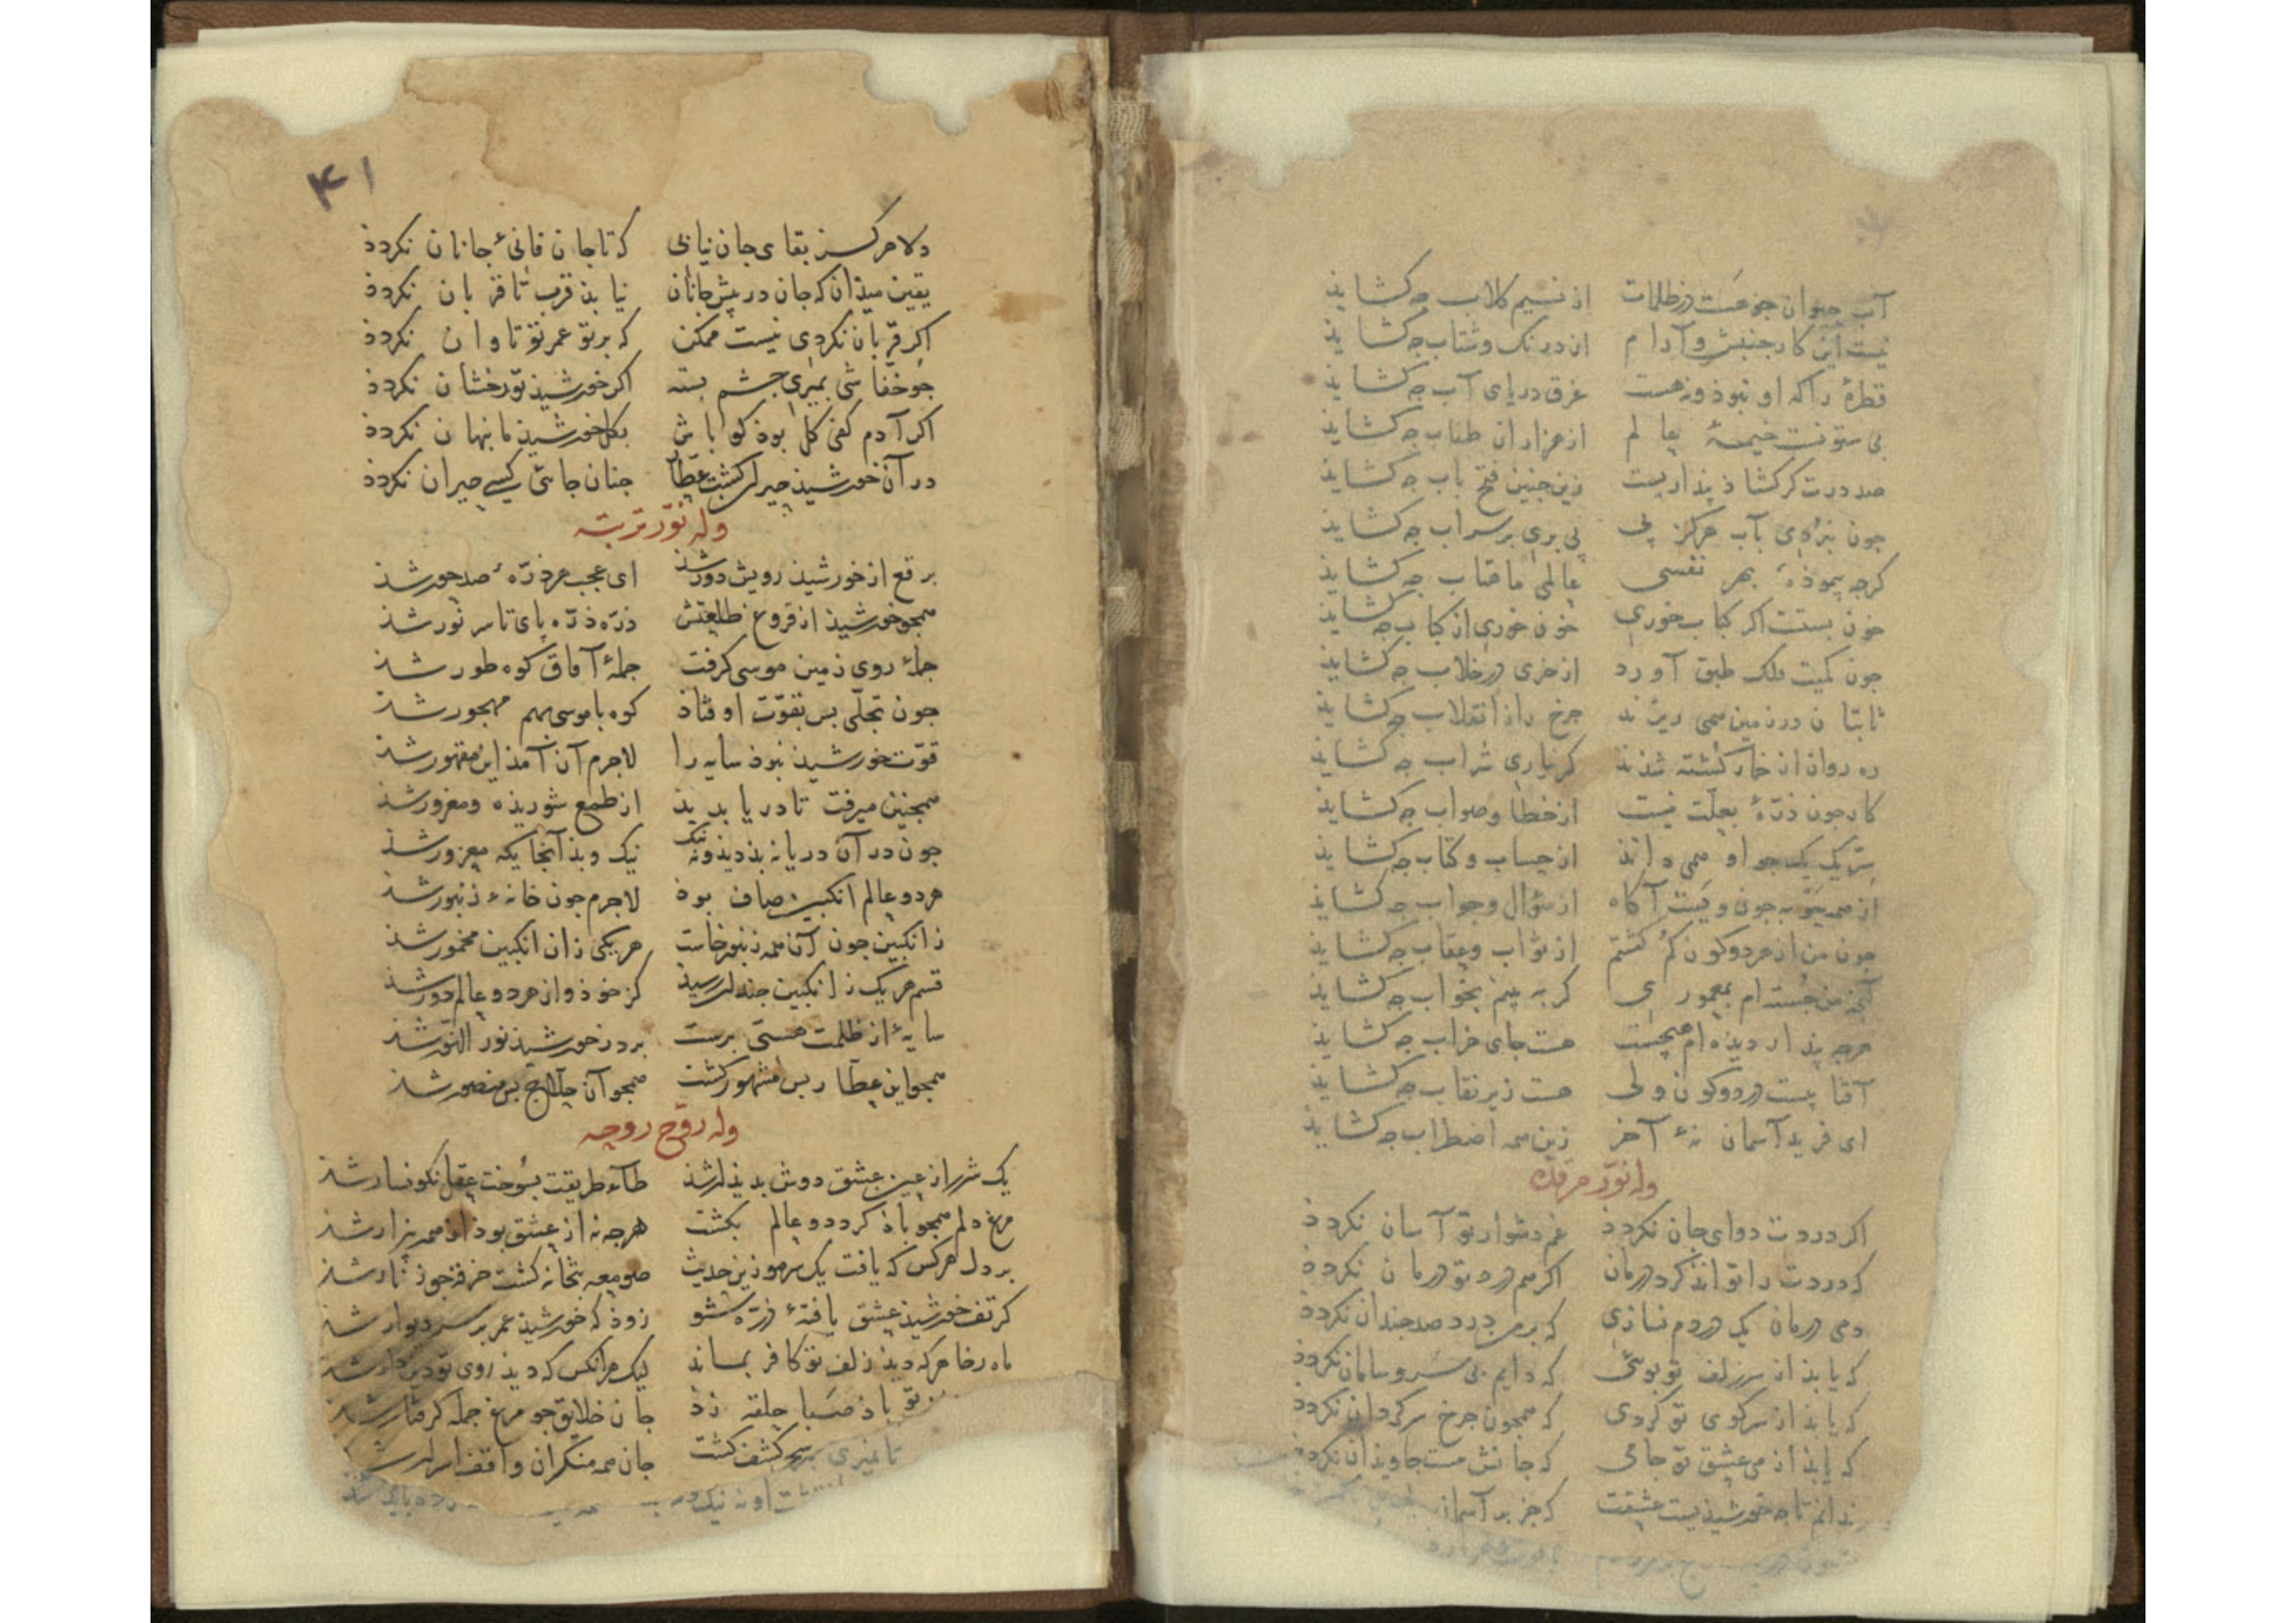 آب حیوان جو هست در ظلمات از نسیم کلاب جه کشاید
نیست این کار جنبش و آرام از درنک و شتاب جه کشاید
قطرهٔ را که او نبوذ و نه هست غرق دریای آب جه کشاید
بی ستونست خیمهٔ عالم از هزاران طناب جه کشاید
صد درت کر کشاذ بنداریست زین جنین فتح باب جه کشاید
جون نبردی بآب هرکز پی پی بری بر سراب جه کشاید
کرجه پیموذهٔ بهر نفسی عالمی ماهتاب جه کشاید
خون بستست اکر کباب خوری خون خوری از کباب جه کشاید
جون کمیت فلک طبق آورد از خری در خلاب جه کشاید
ثابتان در زمین همی ریزند جرخ را از انقلاب جه کشاید
ره روان از خمار کشته شذند کر نیاری شراب جه کشاید
کار جون ذرّهٔ بعلّت نیست از خطا و صواب جه کشاید
سرّ یک یک جو او همی داند از حساب و کتاب جه کشاید
از همه جون ویست آکاه از سؤال و جواب جه کشاید
جون من از هر دو کون کم کشتم از ثواب و عقاب جه کشاید
آنج من جسته ام بمعموری کر به بینم بخواب جه کشاید
هرجه بندار دیده ام هیجست هست جای خراب جه کشاید
آفتابیست در دو کون ولی هست زیر نقاب جه کشاید
ای فرید آسمان نهٔ آخر زین همه اضطراب جه کشاید
وله نوّر مرقده
اکر دردت دوای جان نکردذ غم دشوار تو آسان نکردذ
که دردت را تواند کرد درمان اکر هم درد تو درمان نکردذ
دمی درمان یک دردم نسازی که بر من درد صد جندان نکردذ
که یابذ از سر زلف تو بویی که دایم بی سر و سامان نکردذ
که یابذ از سر کوی تو کردی که همجون جرخ سرکردان نکردذ
که یابذ از می عشق تو جامی که جانش مست جاویذان نکردذ
ندانم تا جه خورشیذیست عشقت که جز بر آسمان
۴۱
دلا هرکز بقای جان نیابی که تا جان فانیٔ جانان نکردذ
یقین میدان که جان در پیش جانان نیابذ قرب تا قربان نکردذ
اکر قربان نکردی نیست ممکن که بر تو عمر تو تاوان نکردذ
جو خفاشی بمیری جشم بسته اکر خورشیذ تو رخشان نکردذ
اکر آدم کفی کل بوذ کو باش بکل خورشیذ ما پنهان نکردذ
در آن خورشیذ حیران کشت عطار جنان جایی کسی حیران نکردذ
وله نوّر تربته
برقع از خورشیذ رویش دور شذ ای عجب هر ذرّهٔ صد حور شذ
همجو خورشیذ از فروغ طلعتش ذرّه ذرّه پای تا سر نور شذ
جملهٔ روی زمین موسی کرفت جملهٔ آفاق کوه طور شذ
جون تجلّی بس بقوّت اوفتاذ کوه با موسی بهم مهجور شذ
قوّت خورشیذ نبوذ سایه را لاجرم آن آمذ این مقهور شذ
همجنین میرفت تا دریا بدید از طمع شوریذه و مغرور شذ
جون در آن دریا نه بذ دیذ و نه نیک نیک و بذ آنجایکه معزور شذ
هر دو عالم انکبین صاف بوذ لاجرم جون خانهٔ زنبور شذ
ز انکبین جون آن همه زنبور خاست هر یکی زان انکبین مخمور شذ
قسم هر یک ز انکبین جندان رسیذ کز خوذ و از هر دو عالم دور شذ
سایهٔ از ظلمت هستی برست بر در خورشیذ نور النّور شذ
همجو این عطّار بس مشهور کشت همجو آن حلّاج بس منصور شذ
وله روّح روحه
یک شرر از عین عشق دوش بدیذار شذ طای طریقت بسوخت عقل نکونسار شذ
مرغ دلم همجو باذ کرد دو عالم بکشت هرجه نه از عشق بوذ از همه بیزار شذ
بر دل هر کس که یافت یک سر مو زین حدیث صومعه بتخانه کشت خرقه جو زنّار شذ
کر تف خورشیذ عشق یافتهٔ ذرّه شو زوذ که خورشیذ عمر بر سر دیوار شذ
ماه رخا هر که دیذ زلف تو کافر بماند لیک هر آنکس که دیذ روی تو دین دار شذ
تو باذ صبا حلقه زذ جان خلایق جو مرغ جمله کرفتار شذ
کشف کشت جان همه منکران واقف اسرار شذ